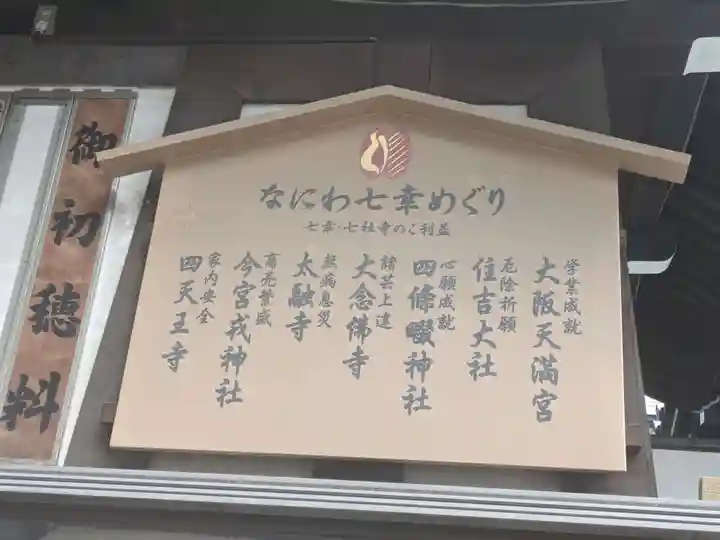 なにわ七幸めぐり
七幸・七社寺のご利益
学業成就
大阪天満宮
厄除祈願
住吉大社
心願成就
四條畷神社
諸芸上達
大念佛寺
無病息災
太融寺
商売繁盛
今宮戎神社
家内安全
四天王寺
御初穂料